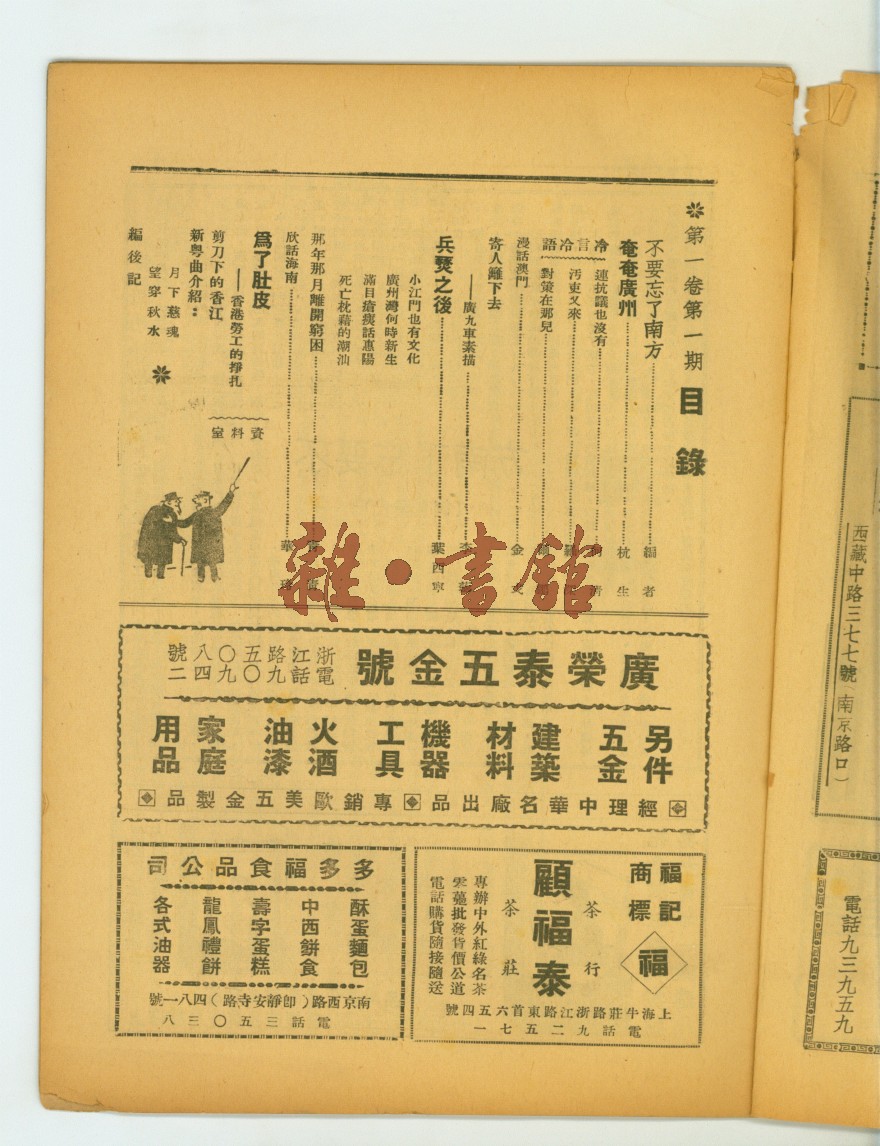 第一卷第一期 目錄
不要忘了南方 編者
奄奄廣州 枕生
冷言冷語
連抗議也沒有
污吏又來
對策在那兒
漫話澳門 金
寄人籬下去
——廣九車素描
兵燹之後 葉西寧
小江門也有文化
廣州灣何時新生
滿目瘡痍話惠陽
死亡枕藉的潮汕
那年那月離開窮困
欣話海南 華
為了肚皮
——香港勞工的掙扎 資料室
剪刀下的香江
新粵曲介紹：
月下慈魂
望穿秋水
編後記
雜·書館
廣榮泰五金號
浙江路五〇八號
電話九〇九四二
另件五金
建築材料
機器工具
火酒油漆
家庭用品
經理中華名廠出品 專銷歐美五金製品
福記商標
福
顧福泰
茶行
茶莊
專辦中外紅綠名茶
零躉批發貨價公道
電話購貨隨接隨送
上海牛莊路浙江路東首六五四號
電話九二五七一
多多福食品公司
酥蛋麵包
中西餅食
壽字蛋糕
龍鳳禮餅
各式油器
南京西路（即靜安寺路）四八一號
電話三五〇三八
西藏中路三七七號（南京路口）
電話九三九五九